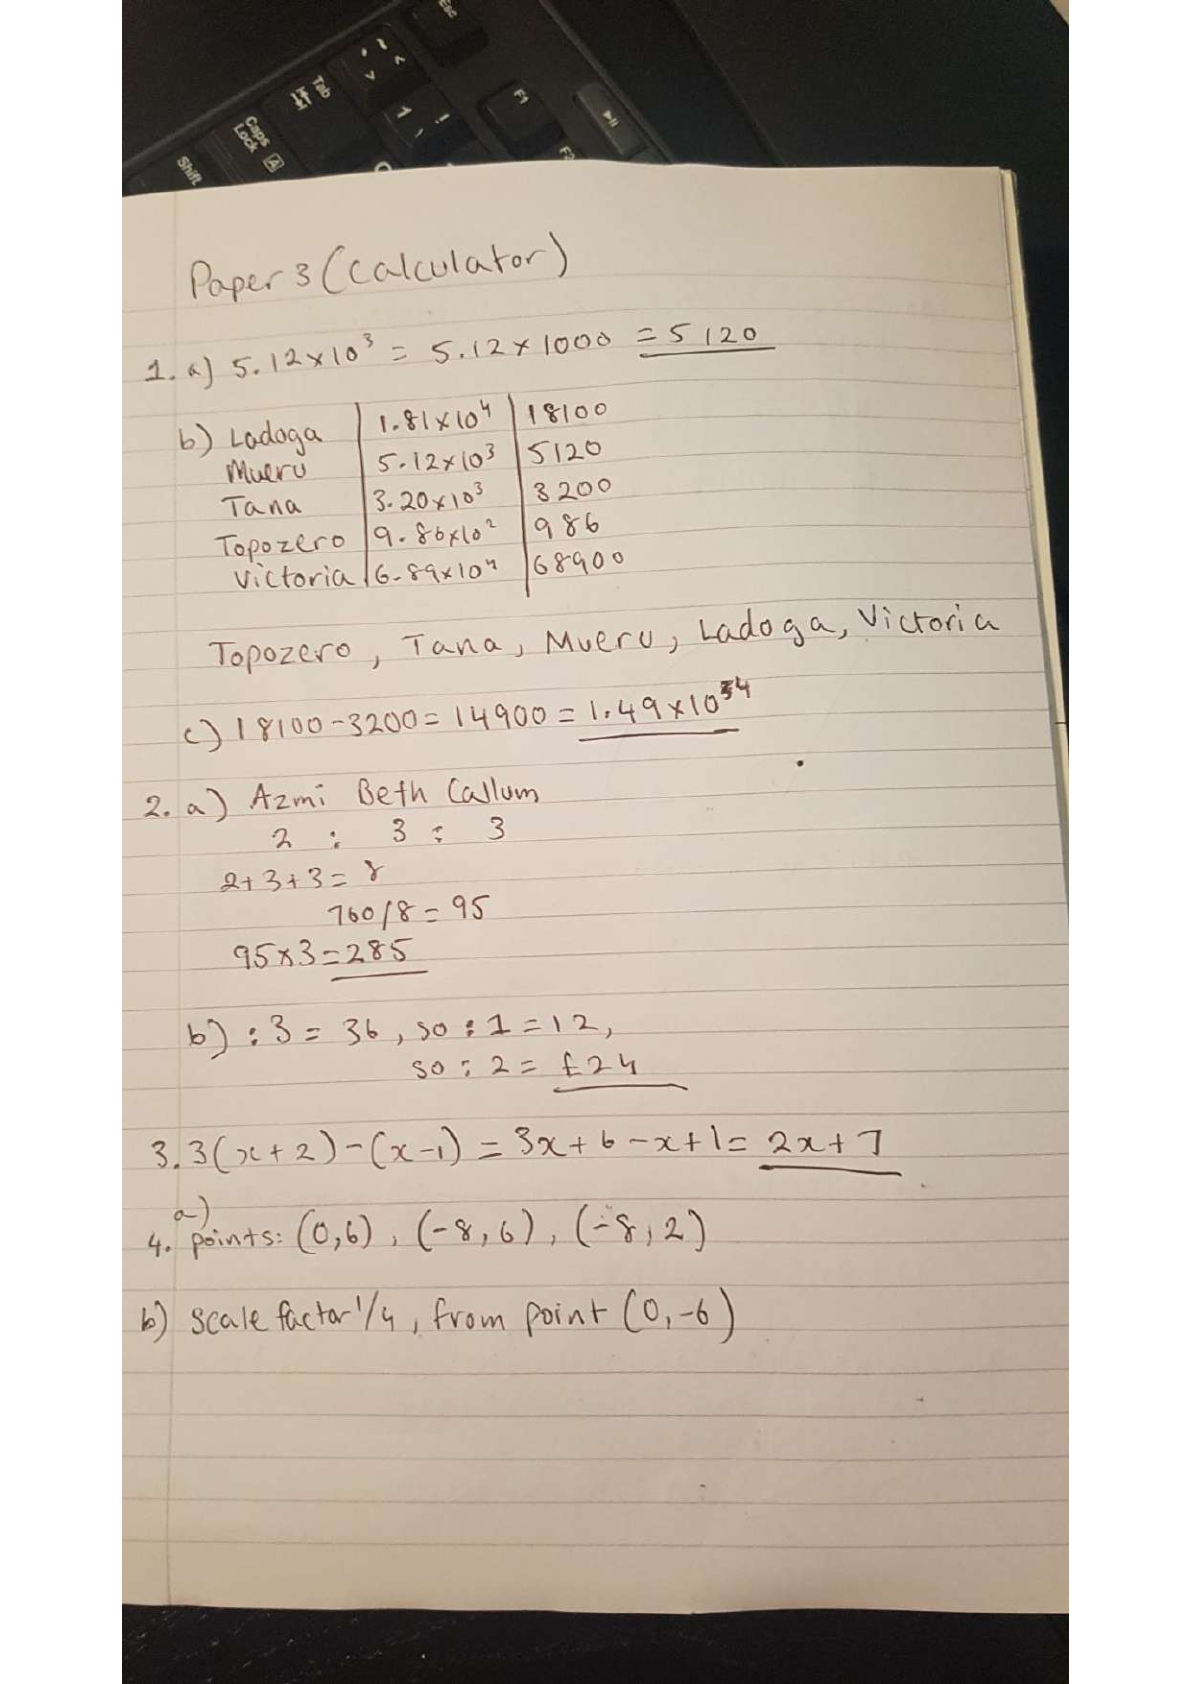 Esc
~
^
Tab
! 1
F1
Caps Lock A
F2
Shift
Paper 3 (Calculator)
1. a) 5.12×10³ = 5.12×1000 = 5120
b) Ladoga | 1.81×10⁴ | 18100
Mueru | 5.12×10³ | 5120
Tana | 3.20×10³ | 3200
Topozero | 9.86×10² | 986
Victoria | 6.89×10⁴ | 68900
Topozero, Tana, Mueru, Ladoga, Victoria
c) 18100-3200 = 14900 = 1.49×10⁴
2. a) Azmi Beth Callum
2 : 3 : 3
2+3+3 = 8
760/8 = 95
95×3 = 285
b) :3 = 36, so :1 = 12,
so :2 = £24
3. 3(x+2)-(x-1) = 3x+6-x+1 = 2x+7
a)
4. points: (0,6), (-8,6), (-8,2)
b) Scale factor 1/4, from point (0,-6)